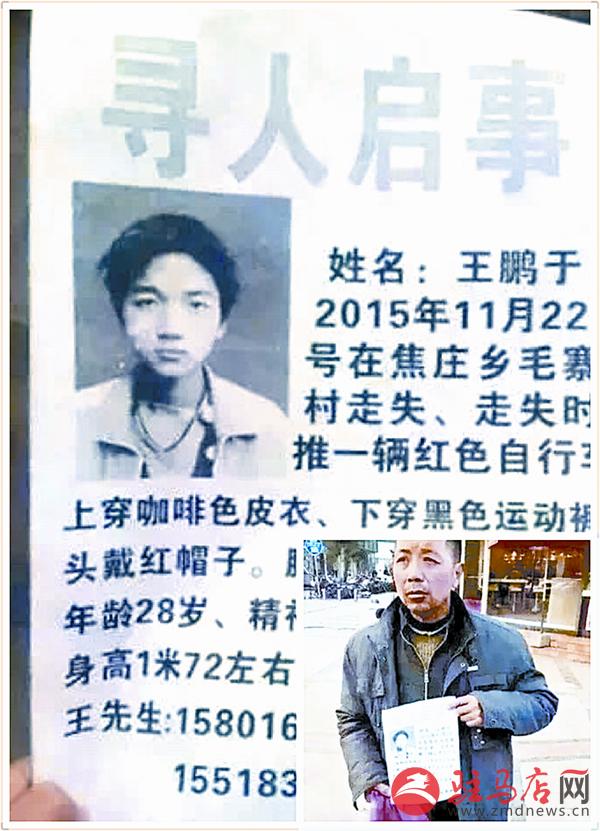 寻人启事
姓名：王鹏于
2015年11月22
号在焦庄乡毛寨
村走失、走失时
推一辆红色自行车
上穿咖啡色皮衣、下穿黑色运动裤
头戴红帽子。
年龄28岁、精神
身高1米72左右
王先生:158016
155183
驻马店网
www.zmdnews.cn